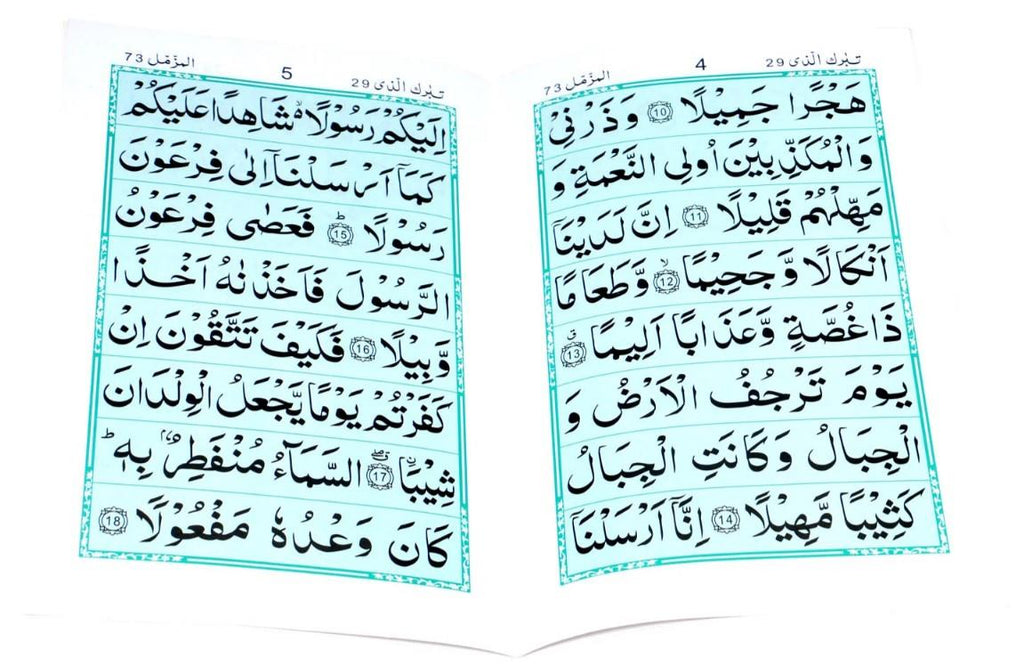 تبٰرك الّذى 29
4
المزّمّل 73
هَجْرًا جَمِيْلًا 10 وَذَرْنِيْ
وَالْمُكَذِّبِيْنَ اُولِى النَّعْمَةِ وَ
مَهِّلْهُمْ قَلِيْلًا 11 اِنَّ لَدَيْنَاۤ
اَنْكَالًا وَّجَحِيْمًا ۙ 12 وَّطَعَامًا
ذَا غُصَّةٍ وَّعَذَابًا اَلِيْمًا ۗ 13
يَوْمَ تَرْجُفُ الْاَرْضُ وَ
الْجِبَالُ وَكَانَتِ الْجِبَالُ
كَثِيْبًا مَّهِيْلًا 14 اِنَّاۤ اَرْسَلْنَاۤ
تبٰرك الّذى 29
5
المزّمّل 73
اِلَيْكُمْ رَسُوْلًا ۙ شَاهِدًا عَلَيْكُمْ
كَمَاۤ اَرْسَلْنَاۤ اِلٰى فِرْعَوْنَ
رَسُوْلًا ؕ 15 فَعَصٰى فِرْعَوْنُ
الرَّسُوْلَ فَاَخَذْنٰهُ اَخْذًا
وَّبِيْلًا 16 فَكَيْفَ تَتَّقُوْنَ اِنْ
كَفَرْتُمْ يَوْمًا يَّجْعَلُ الْوِلْدَانَ
شِيْبًا ۖ 17 السَّمَآءُ مُنْفَطِرٌۢ بِهٖ ؕ
كَانَ وَعْدُهٗ مَفْعُوْلًا 18